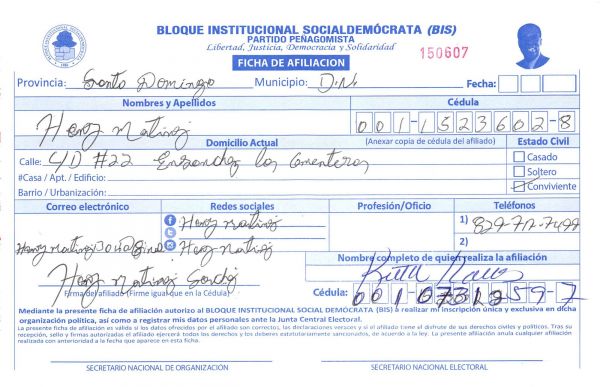 BLOQUE INSTITUCIONAL SOCIALDEMÓCRATA (BIS)
PARTIDO PEÑAGOMISTA
Libertad, Justicia, Democracia y Solidaridad
150607
FICHA DE AFILIACION
Provincia: Santo Domingo Municipio: D.N. Fecha:
Nombres y Apellidos Cédula
Henry Martinez 001-1523602-8
Domicilio Actual (Anexar copia de cédula del afiliado) Estado Civil
Calle: 4/D #22 Ensanche los
#Casa / Apt. / Edificio:
Barrio / Urbanización:
Casado
Soltero
Conviviente
Correo electrónico Redes sociales Profesión/Oficio Teléfonos
Henry Martinez 1) 829-712-7499
Henry Martinez 2)
Nombre completo de quien realiza la afiliación
Henry Martinez
Firma del afiliado (Firme igual que en la Cédula)
Cédula: 001-0731259-7
Mediante la presente ficha de afiliación autorizo al BLOQUE INSTITUCIONAL SOCIAL DEMÓCRATA (BIS) a realizar mi inscripción única y exclusiva en dicha
organización política, así como a registrar mis datos personales ante la Junta Central Electoral.
La presente ficha de afiliación es válida si los datos ofrecidos por el afiliado son correctos, las declaraciones veraces y si el afiliado tiene el disfrute de sus derechos civiles y políticos. Tras su
recepción, sello y firmas autorizadas el afiliado ejercerá todos los derechos y los deberes estatutariamente sancionados, de acuerdo a la ley. La presente afiliación anula cualquier afiliación
realizada con anterioridad a la fecha que aparece en esta ficha.
SECRETARIO NACIONAL DE ORGANIZACIÓN SECRETARIO NACIONAL ELECTORAL